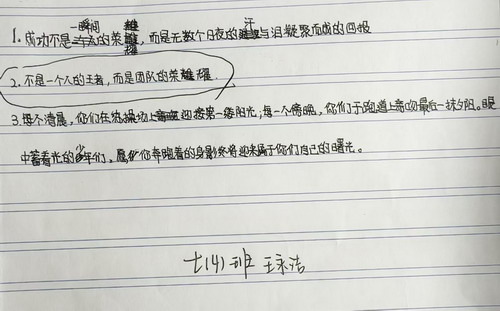 1.成功不是一瞬间的荣耀,而是无数个日夜的汗与泪凝聚而成的回报
2.不是一个人的王者,而是团队的荣耀.
3.每个清晨,你们在操场上迎接第一缕阳光;每一个傍晚,你们于跑道上亲吻最后一抹夕阳。眼
中蓄着光的少年们,愿你奔跑着的身影终将迎来属于你们自己的曙光。
七(4)班 王承浩